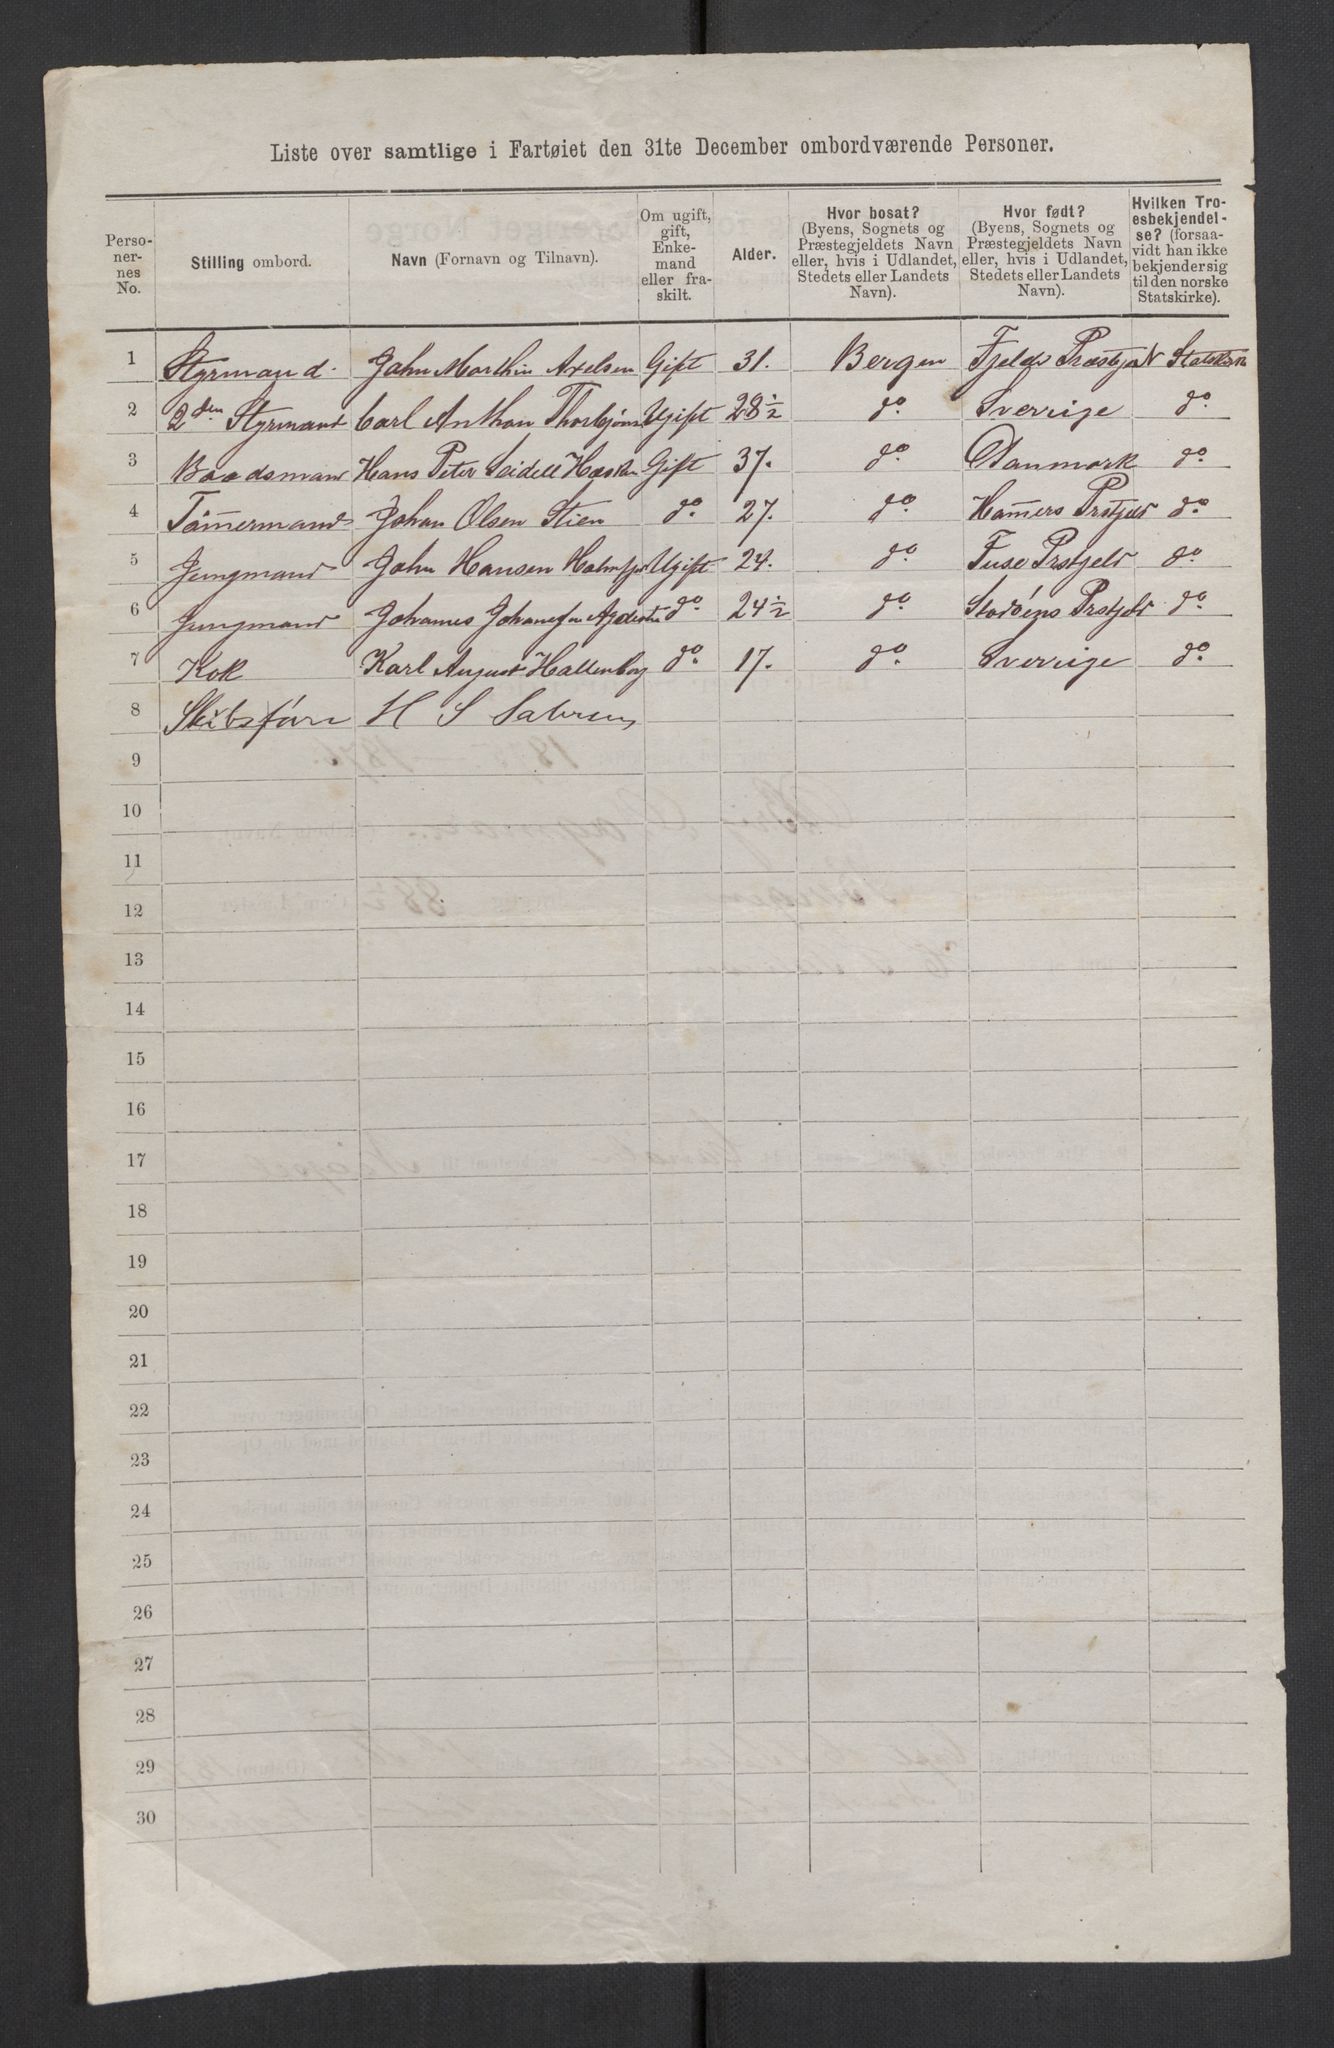 Liste over samtlige i Fartøiet den 31te December ombordværende Personer.
Perso-
ner-
nes
No.
Stilling ombord.
Navn (Fornavn og Tilnavn).
Om ugift,
gift,
Enke-
mand
eller fra-
skilt.
Alder.
Hvor bosat?
(Byens, Sognets og
Præstegjeldets Navn
eller, hvis i Udlandet,
Stedets eller Landets
Navn).
Hvor født?
(Byens, Sognets og
Præstegjeldets Navn
eller, hvis i Udlandet,
Stedets eller Landets
Navn).
Hvilken Tro-
esbekjendel-
se? (forsaa-
vidt han ikke
bekjender sig
til den norske
Statskirke).
1 Styrmand. John Marthin Axelsen Gift 31. Bergen Fjelds N Statskirk
2 2den Styrmand Carl Anthon Ugift 28½ do Sverrige do
3 Baadsmand Hans Peter Seidell Gift 37. do Danmark do
4 Tømmermand Johan Olsen Stien do 27. do Hamers Prstjeld do
5 Jungmand John Hansen Ugift 24. do Fuse Prstjeld do
6 Jungmand Johannes do 24½ do Prstjeld do
7 Kok Karl August Hallenborg do 17. do Sverrige do
8 Skibsfører H S
9
10
11
12
13
14
15
16
17
18
19
20
21
22
23
24
25
26
27
28
29
30